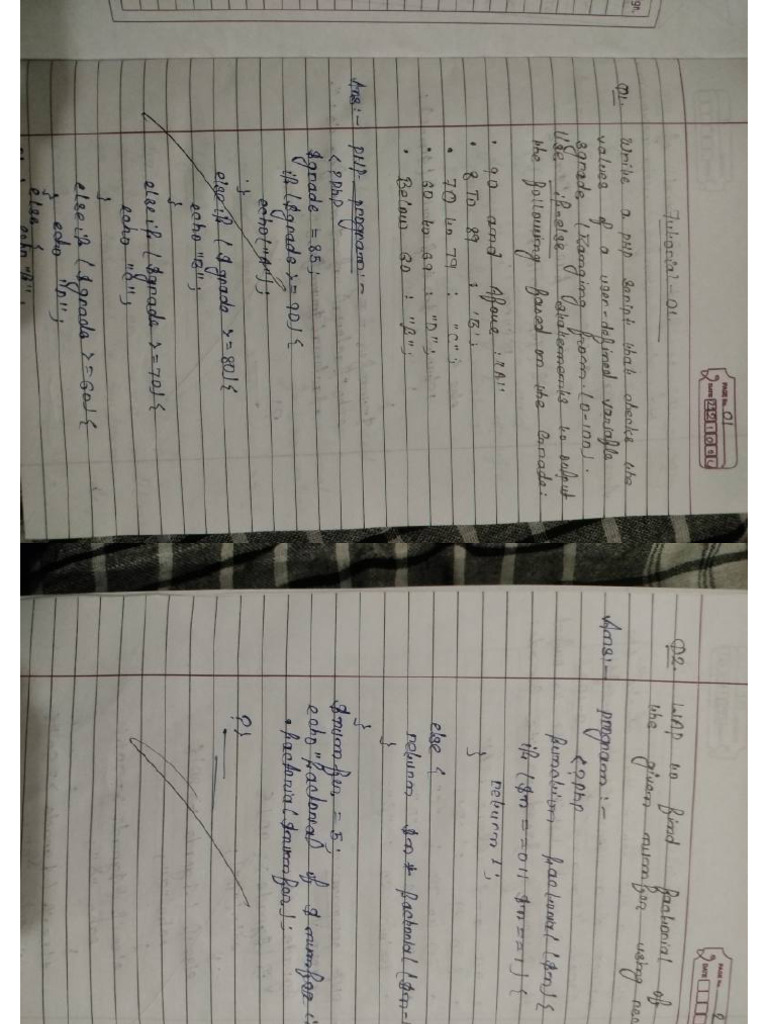 PAGE No. 01
DATE
Tutorial - 01
Q1. Write a php script that checks the
values of a user-defined variable
$grade (Ranging from (0-100).
Use if-else statements to output
the following based on the Grade:
• 90 and Above : "A"
• 8 To 89 : 'B';
• 70 to 79 : "C";
• 60 to 69 : "D";
• Below 60 : "B";
Ans:- PHP program:-
<?php
$grade = 85;
if ($grade >= 90) {
echo("A");
}
else if ($grade >= 80) {
echo "B";
}
else if ($grade >= 70) {
echo "C";
}
else if ($grade >= 60) {
echo "D";
}
else {
echo
PAGE No.
DATE
Q2. WAP to find factorial of
the given number using
Ans:- program:-
<?php
function factorial ($n) {
if ($n == 0 || $n == 1) {
return 1;
}
else {
return $n * factorial ($n-
}
}
$number = 5;
echo "factorial of $number
. factorial($number);
?>